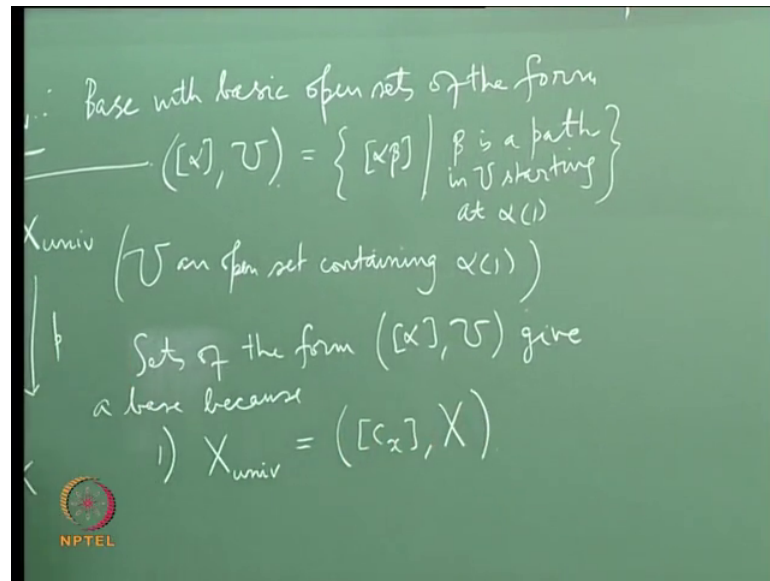 .: Base with basic open sets of the form
([α], U) = { [αβ] | β is a path
in U starting
at α(1) }
X_univ (U an open set containing α(1))
p
Sets of the form ([α], U) give
a base because
1) X_univ = ([c_x], X)
X
NPTEL